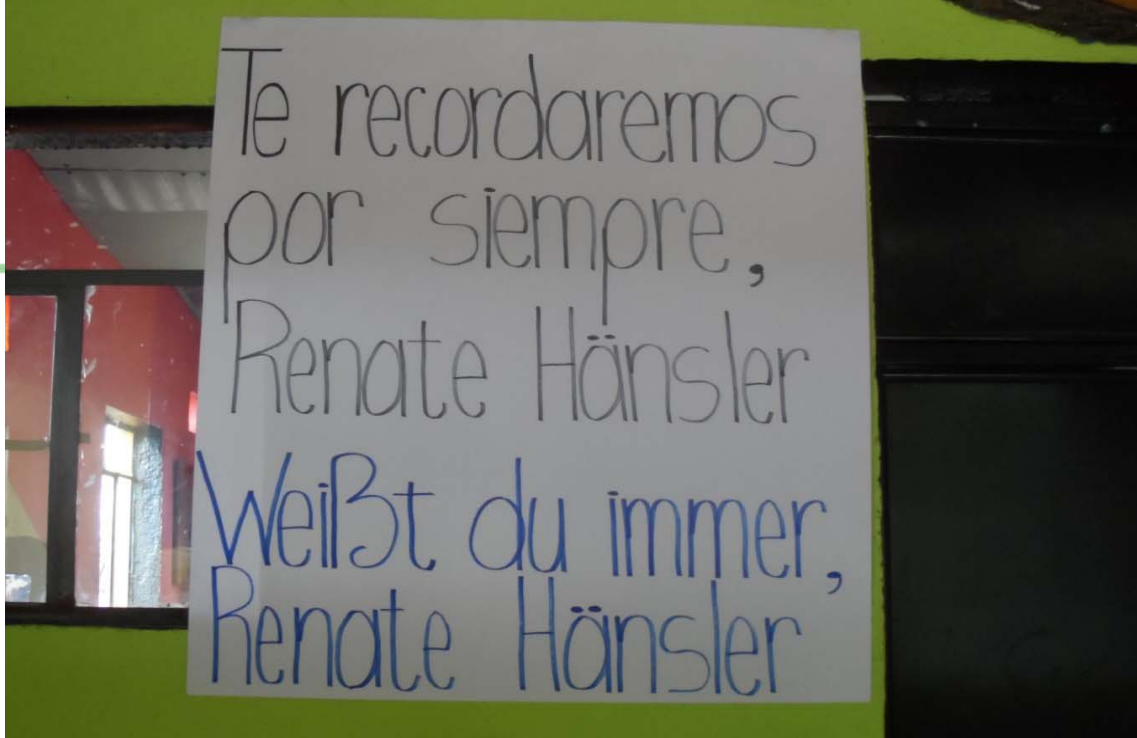 Te recordaremos
por siempre,
Renate Hänsler
Weißt du immer,
Renate Hänsler